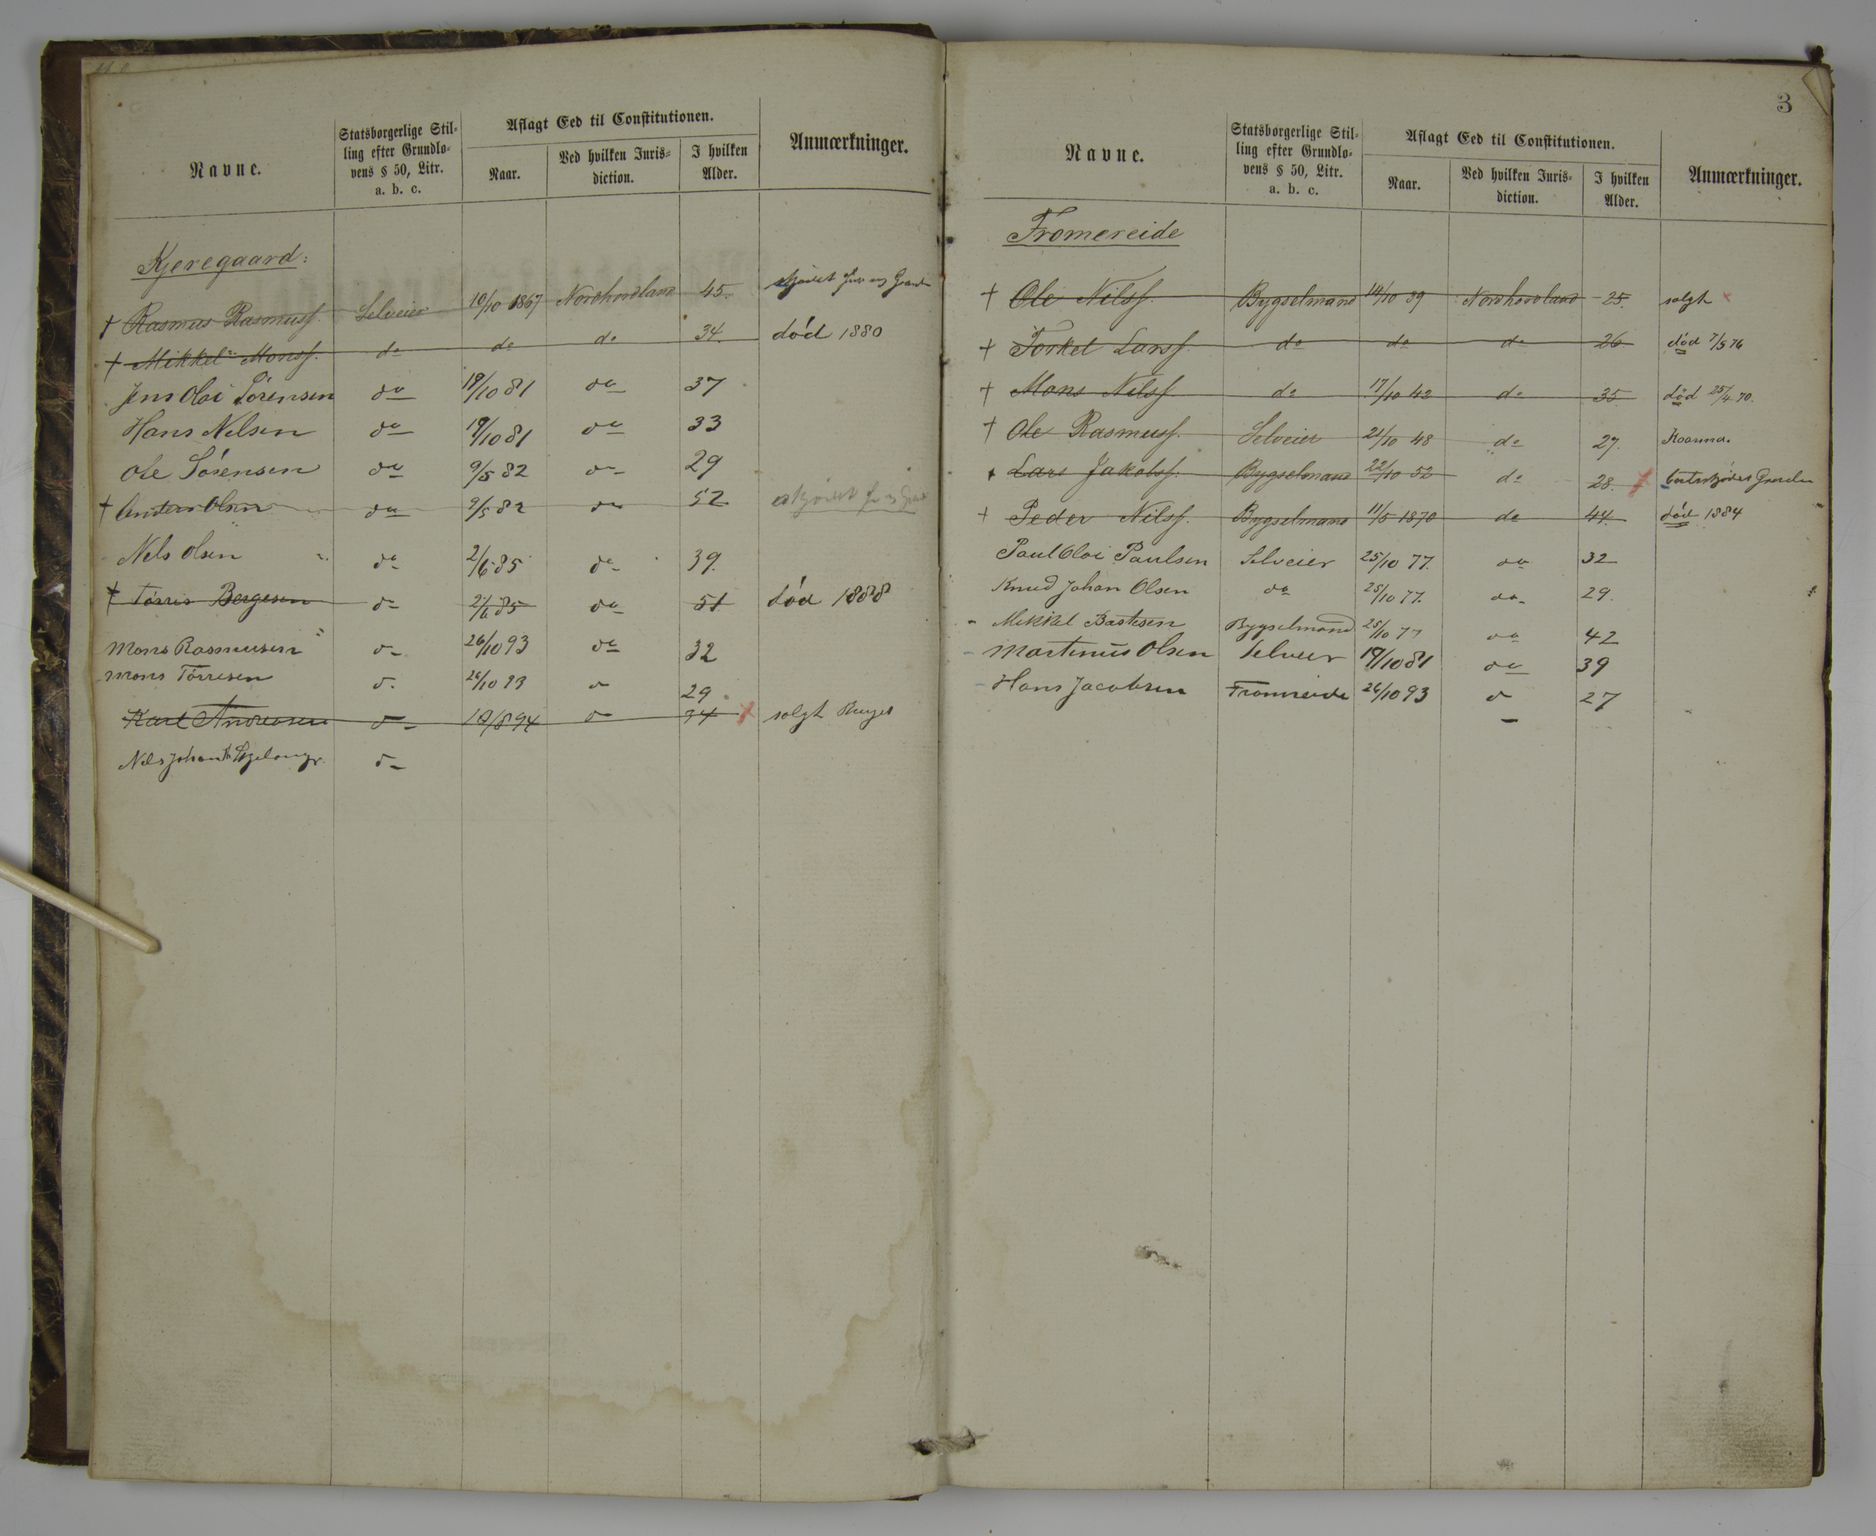 Navne.
Statsborgerlige Stilling efter Grundlovens § 50, Litr. a. b. c.
Aflagt Eed til Constitutionen.
Naar.
Ved hvilken Jurisdiction.
I hvilken Alder.
Anmærkninger.
Kjeregaard:
† Rasmus Rasmusf. Selveier 10/10 1867 Nordhordland 45.
† Mikkel Monsf. do do do 34. død 1880
Jens Oloi Sørensen do 19/10 81 do 37
Hans Nelsen do 19/10 81 do 33
Ole Sørensen do 9/5 82 do 29
† Anders Olsen do 9/5 82 do 52
Nels Olsen do 2/6 85 do 39.
† Tørres Bergesen do 2/6 85 do 51 død 1888
Mons Rasmusen do 26/10 93 do 32
Mons Tørresen do 26/10 93 do 29
Karl Andreasen do 18/8 94 do 34 solgt
Nels Johan do
3
Navne.
Statsborgerlige Stilling efter Grundlovens § 50, Litr. a. b. c.
Aflagt Eed til Constitutionen.
Naar.
Ved hvilken Jurisdiction.
I hvilken Alder.
Anmærkninger.
Fromereide
† Ole Nilsf. Bygselmand 14/10 39 Nordhordland 25. solgt
† Torkel Larsf. do do do 26. død 7/5 76
† Mons Nilsf. do 17/10 42 do 35 død 25/4 70.
† Ole Rasmusf. Selveier 21/10 48 do 27.
† Lars Jakobsf. Bygselmand 22/10 52 do 28.
† Peder Nilsf. Bygselmand 11/5 1870 do 44. død 1884
Paul Oloi Paulsen Selveier 25/10 77. do 32
Knud Johan Olsen do 25/10 77. do 29.
Mikkel Bastesen Bygselmand 25/10 77 do 42
Martinus Olsen Selveier 19/10 81 do 39
Hans Jacobsen Fromreide 26/10 93 do 27